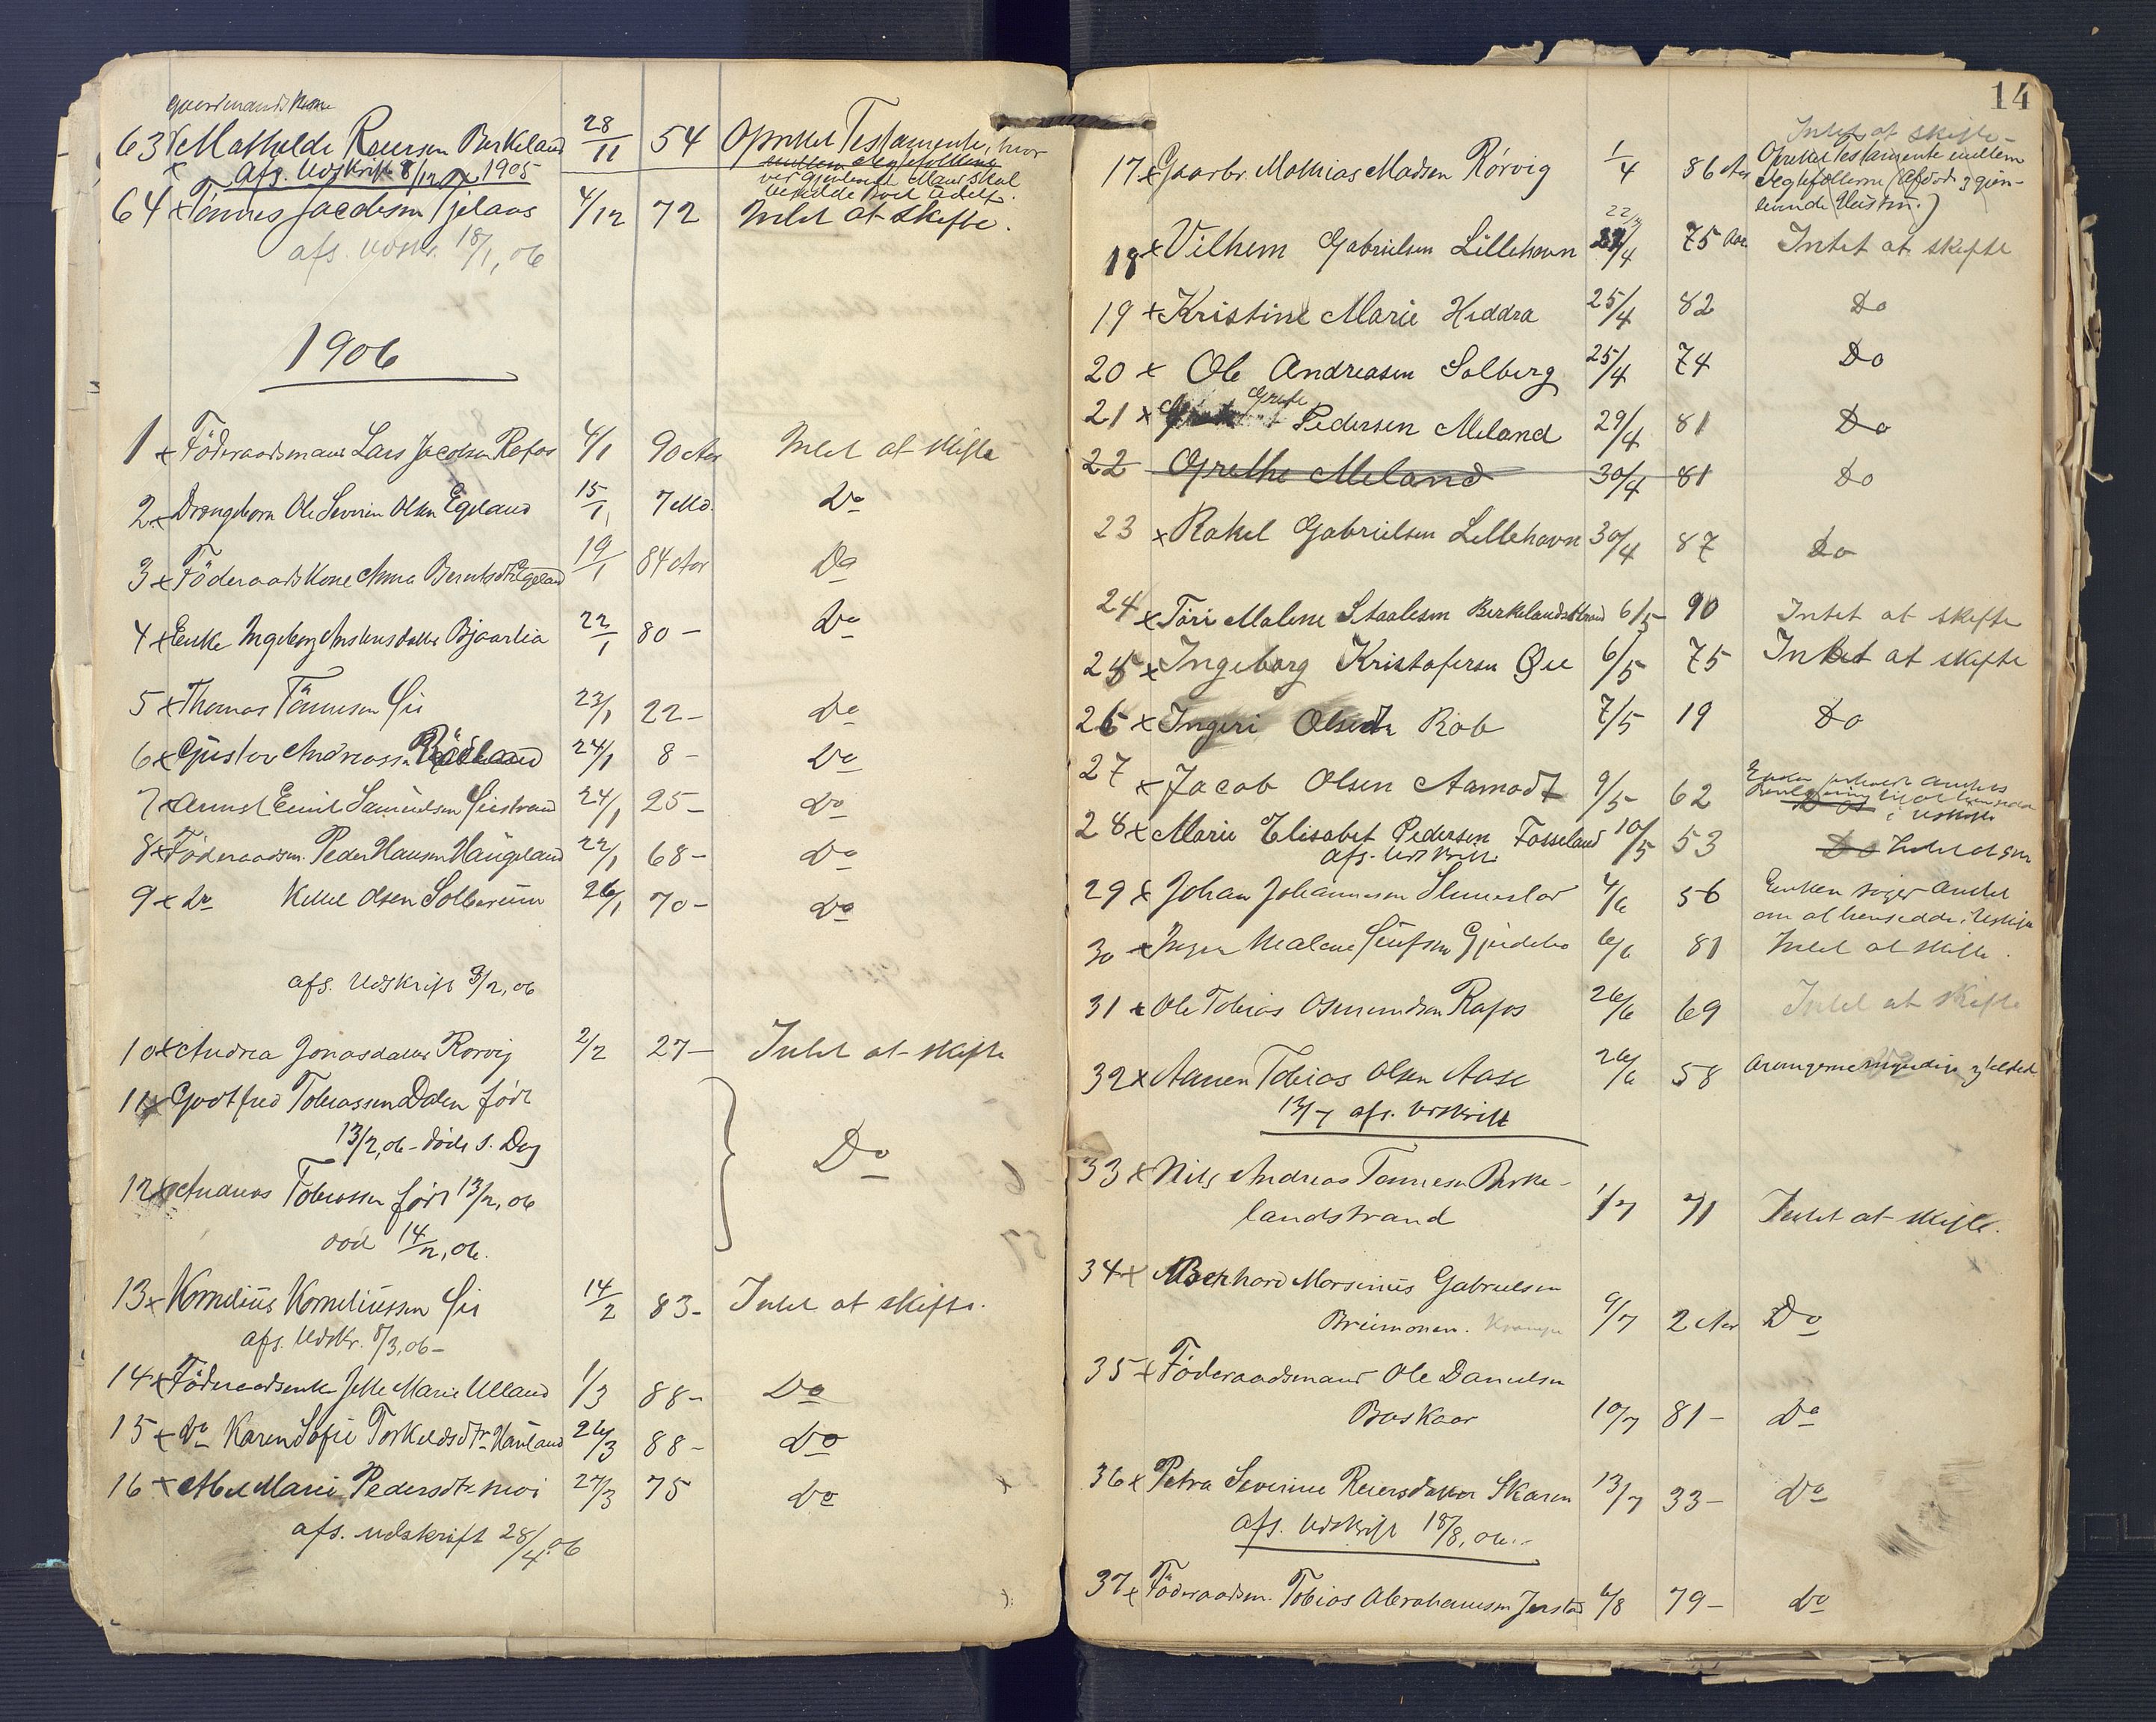 Gaardmands Kone
63 x Mathilde Reiersen Birkeland 28/11 54 Oprettet Testamente, hvor
x Afs. Udskrift 8/12 1905
64 x Tønnes Jacobsen 4/12 72 Intet at skifte.
afs. Udskr. 18/1, 06
1906
1 x Föderaadsmand Lars Jacobsen Rafos 4/1 90 Aar Intet at skifte
2 x Drengebarn Ole Severin Olsen Egeland 15/1 7 Md. Do
3 x Föderaadskone Anna Berntsdtr Egeland 19/1 84 Aar Do
4 x Enke Ingeborg Bjaarlia 22/1 80 – Do
5 x Thomas Tönnesen 23/1 22 – Do
6 x Gustav Andreassen 24/1 8 – Do
7 x Emil Samuelsen 24/1 25 – Do
8 x Föderaadsm. Peder Hansen Haugeland 22/1 68 – Do
9 x Do Olsen 26/1 70 – Do
afs. Udskrift 3/2, 06
10 x Andrea Jonasdatter Rørvig 2/2 27 – Intet at skifte
11 x Godtfred Tobiassen Dalen født
13/2, 06 – døde s. Dag Do
12 x Andreas Tobiassen født 13/2, 06
död 14/2, 06.
13 x Kornelius Korneliussen 14/2 83 – Intet at skifte.
afs. Udskr. 8/3, 06 –
14 x Föderaadsenke Marie Ulland 1/3 88 – Do
15 x Do Karen Sofie Torkeldsdtr 26/3 88 – Do
16 x Marie Pedersdtr 27/3 75 Do
afs. udskrift 28/4 06
14
Intet at skifte –
17 x Gaarbr. Mathias Madsen Rörvig 1/4 86 Aar Oprettet Testamente mellem
Ægtefællerne
18 x Vilhem Gabrielsen Lillehavn 22/4 75 Aar Intet at skifte
19 x Kristine Marie Hiddra 25/4 82 Do
20 x Ole Andreasen Solberg 25/4 74 Do
21 x Grete Pedersen Meland 29/4 81 Do
22 Grethe Meland 30/4 81 Do
23 x Rakel Gabrielsen Lillehavn 30/4 87 Do
24 x Töri Malene Staalesen Birkelandsstrand 6/5 90 Intet at skifte
25 x Ingeborg Kristofersen Öie 6/5 75 Intet at skifte
26 x Ingeri Olsdtr Rob 7/5 19 Do
27 x Jacob Olsen Aamodt 9/5 62
28 x Marie Elisabet Pedersen Fosseland 10/5 53 Do
afs. Udskrift
29 x Johan Johannesen 4/6 56 Enken søger Amtet
om at hensidde i Uskifte
30 x Malene 6/6 81 Intet at skifte.
31 x Ole Tobias Osmundsen Rafos 26/6 69 Intet at skifte
32 x Aanen Tobias Olsen Aase 26/6 58 Arvingerne myndige
13/7 afs. Udskrift
33 x Nils Andreas Tønnesen Birke-
landstrand 1/7 71 Intet at skifte.
34 x Gabrielsen
9/7 2 Aar Do
35 x Föderaadsmand Ole Danielsen
Buskaar 10/7 81 – Do
36 x Petra Severine Reiersdatter Skaren 13/7 33 – Do
afs. Udskrift 18/8, 06. –
37 x Föderaadsm. Tobias Abrahamsen 6/8 79 – Do